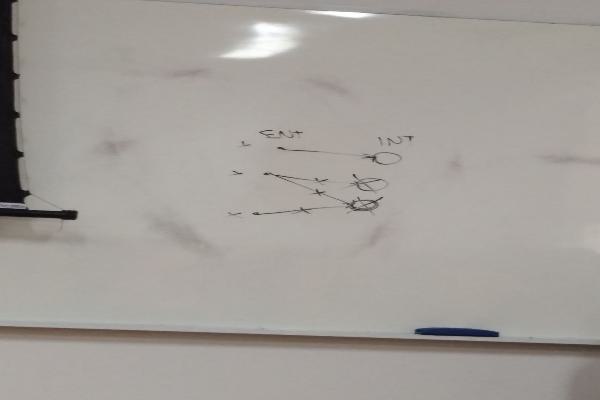 ENT INT